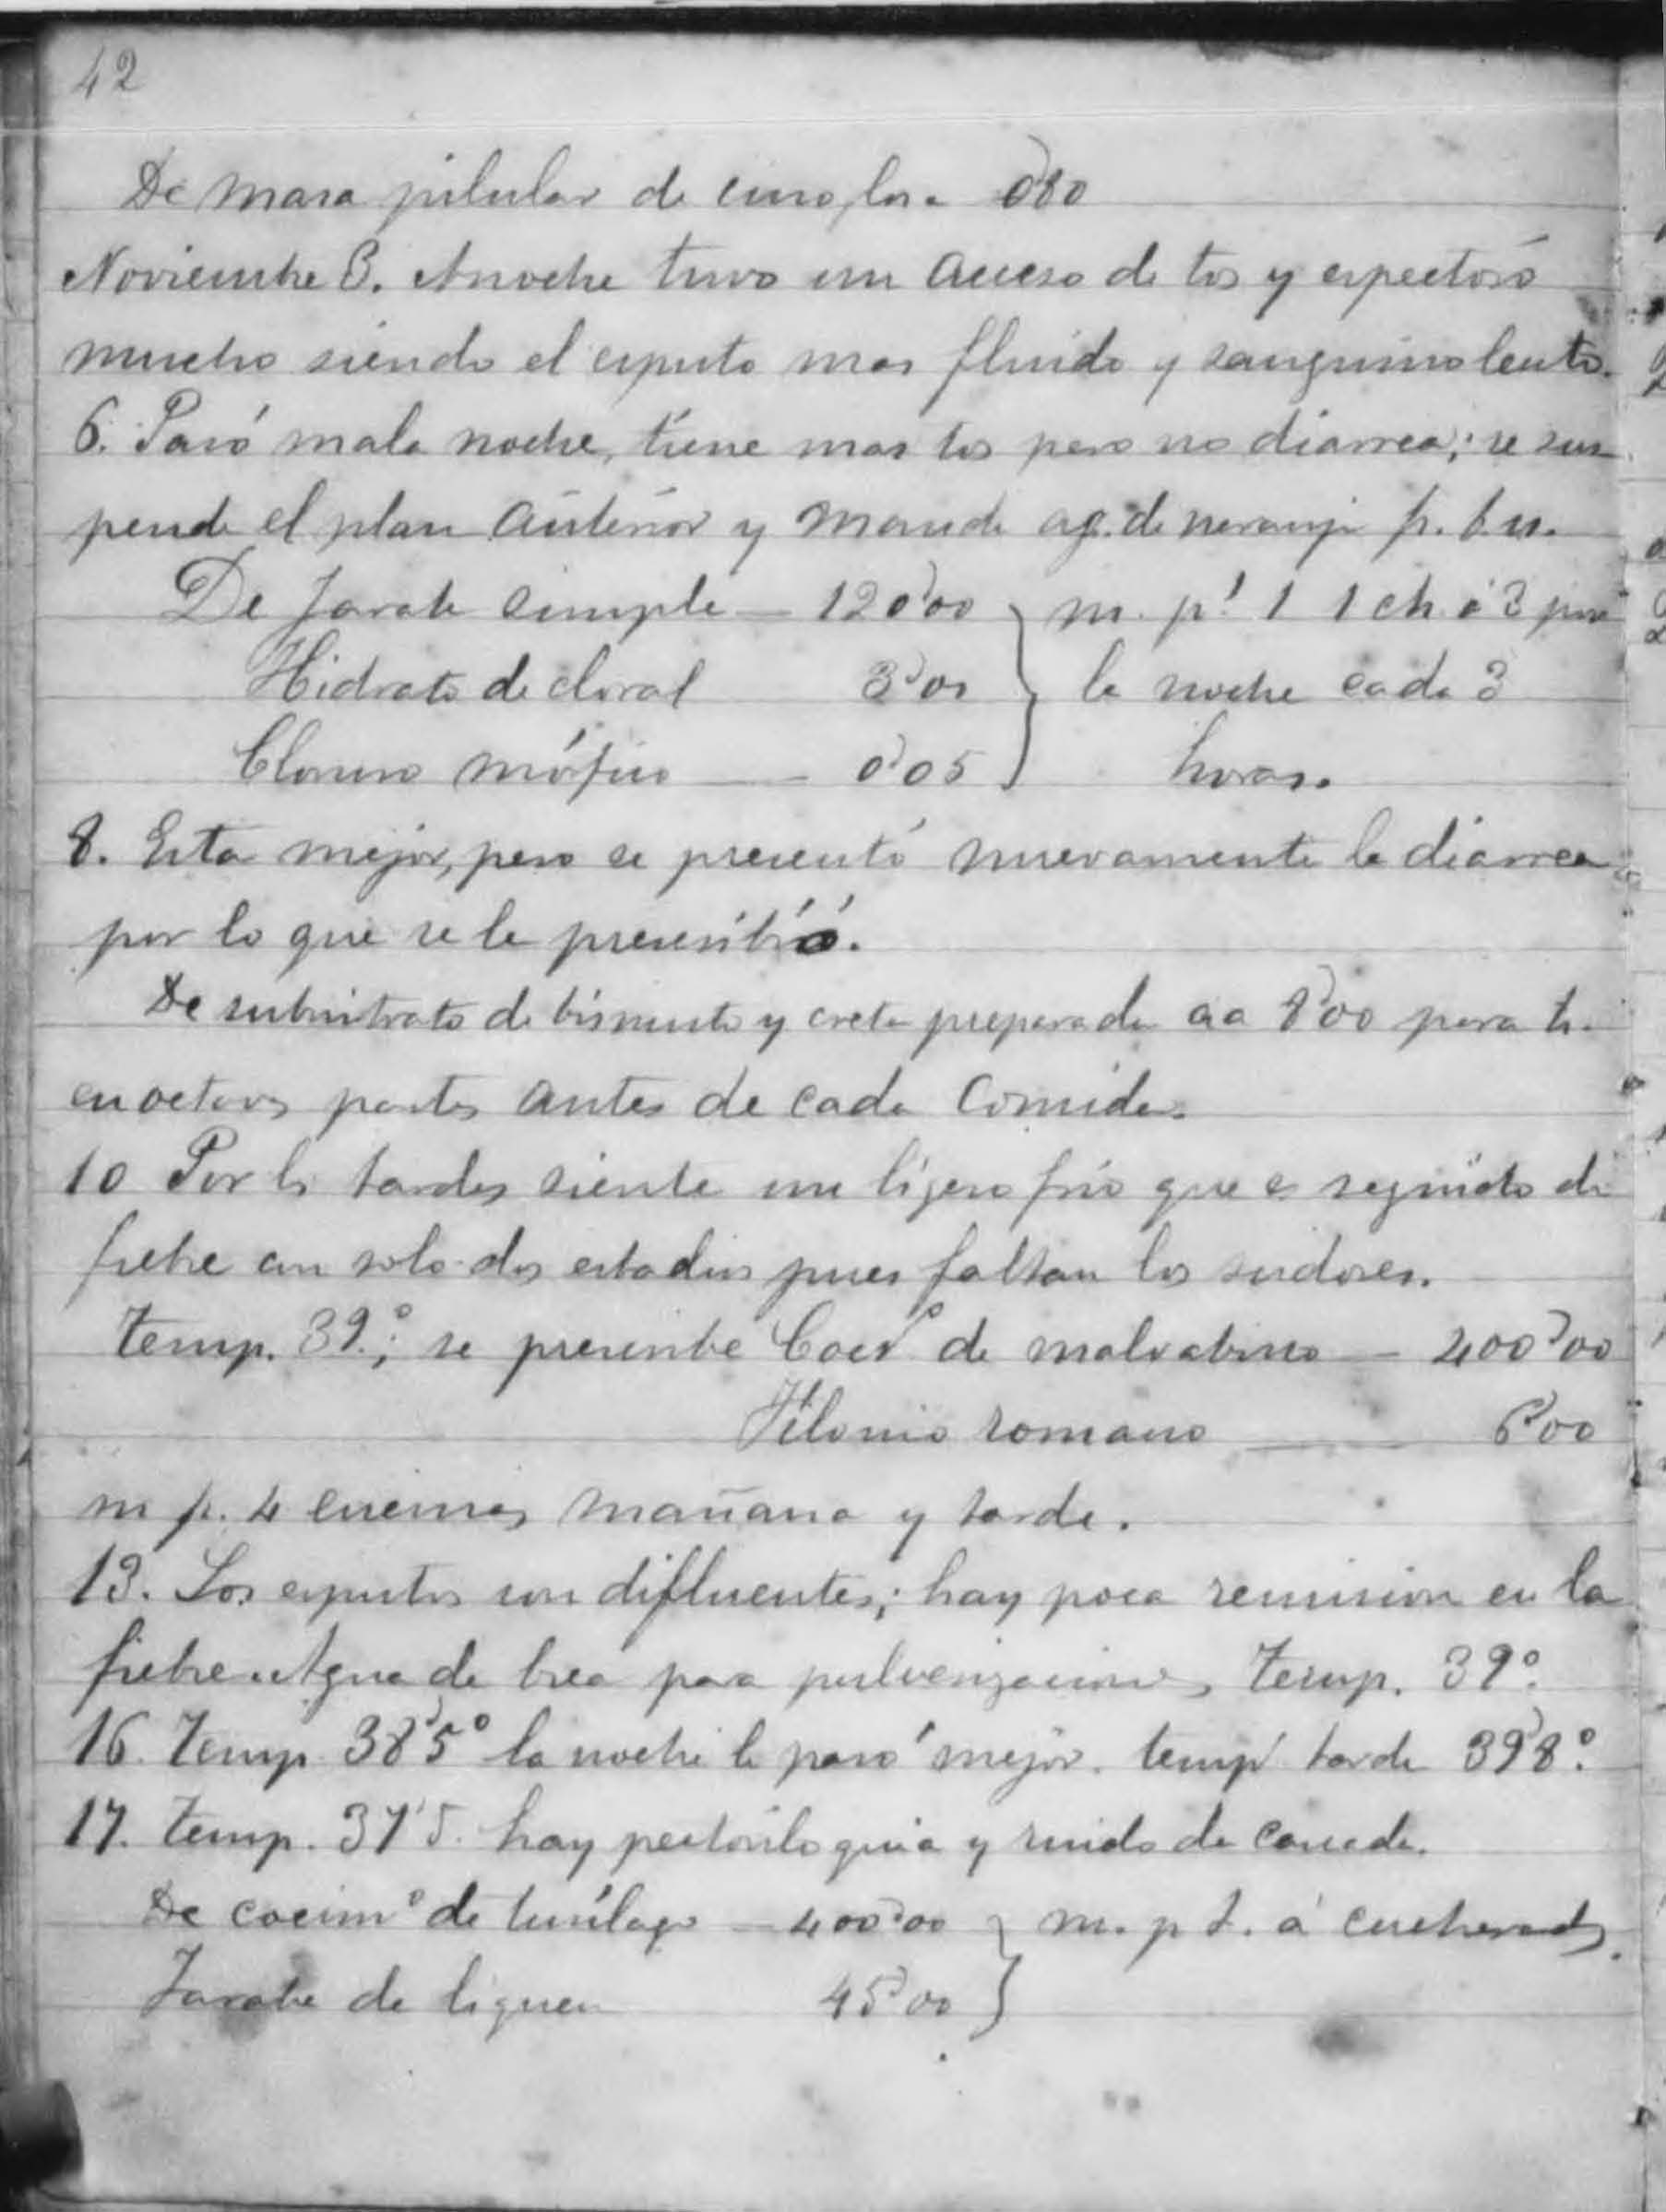 42
De masa pilular de cinoglosa 0'80
Noviembre 3. Anoche tuvo un acceso de tos y espectoró
mucho siendo el esputo mas fluido y sanguinolento.
6. Pasó mala noche, tiene mas tos pero no diarrea; se sus
pende el plan anterior y mande ag. de naranjo p. b. u.
De Jarabe simple — 120'00 } m. p. t. 1 ch. á 3 por
Hidrato de cloral 3'00 } la noche cada 3
Cloruro mórfico — 0'05 } horas.
8. Esta mejor, pero se presentó nuevamente la diarrea
por lo que se le prescribió.
De subnitrato de bismuto y creta preparada aa 8'00 para t.
en octavas partes antes de cada comida.
10 Por las tardes siente un ligero frio que es seguido de
fiebre con solo dos estadios pues faltan los sudores.
Temp. 39.°; se prescribe Coct° de malvabisco — 400'00
Filonio romano — 6'00
m p. 4 enemas mañana y tarde.
13. Los esputos son difluentes; hay poca remision en la
fiebre. Agua de brea para pulverizaciones, Temp. 39°.
16. Temp. 38'5° la noche la pasó mejor. temp. tarde 39'8°.
17. Temp. 37'5. hay pectoriloquia y ruido de cascada.
De cocim° de tusílago — 400'00 } m. p t. á cucharadas.
Jarabe de liquen 45'00 }